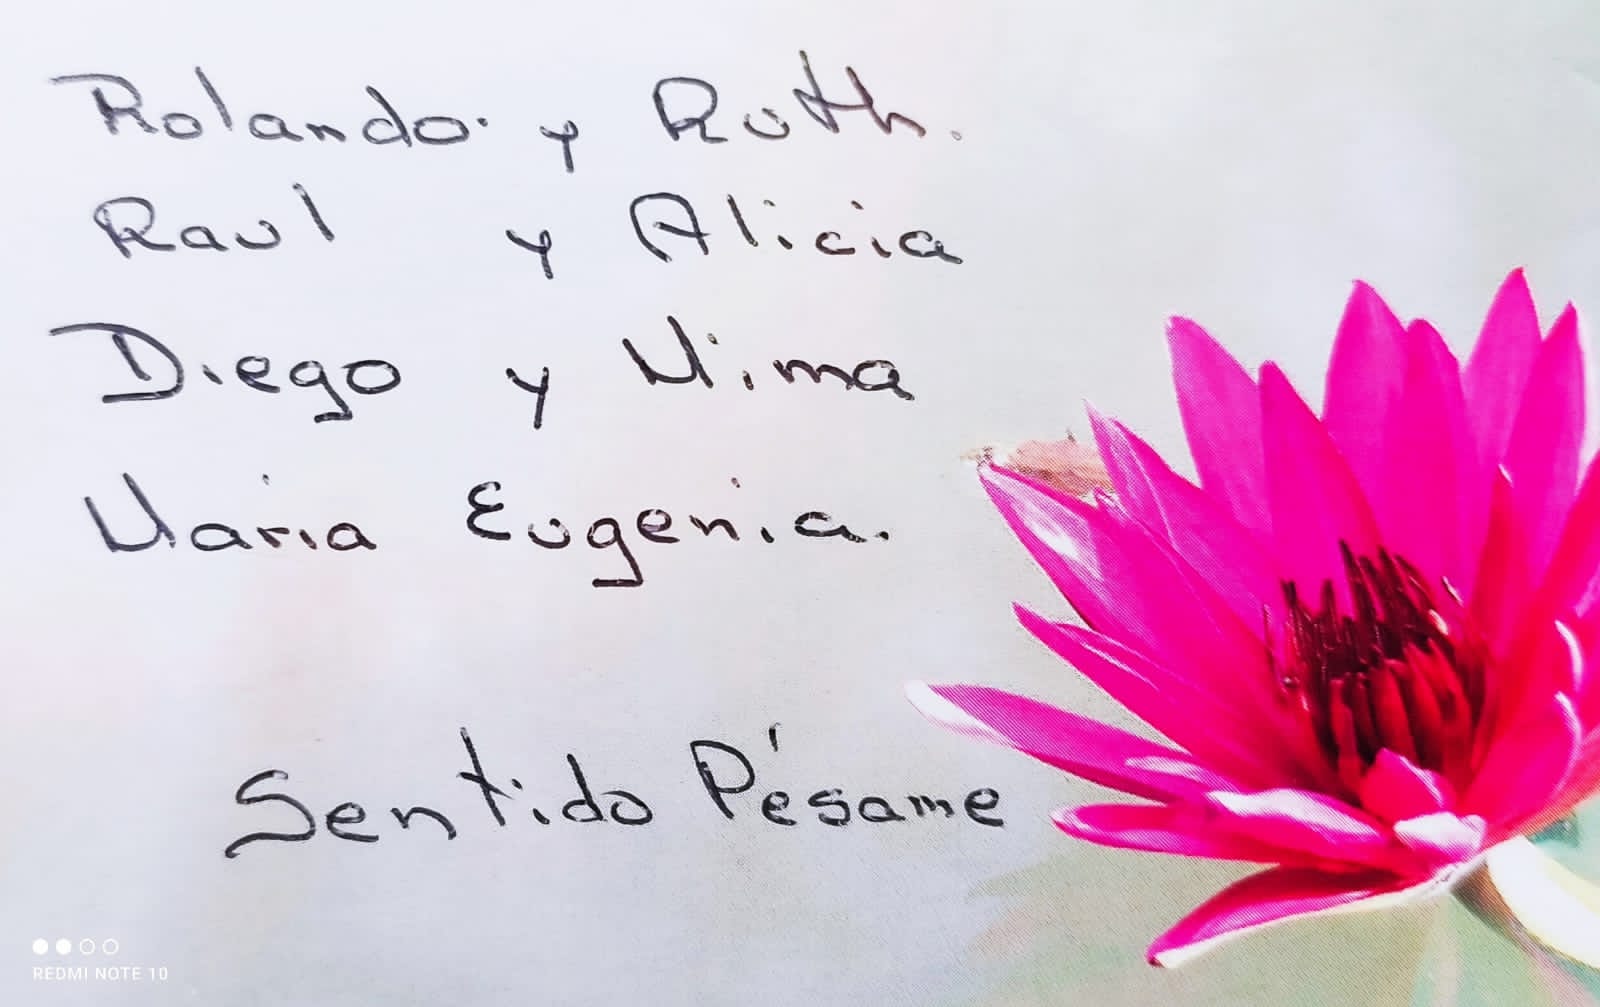 Rolando y Ruth.
Raul y Alicia
Diego y Mima
Maria Eugenia.
Sentido Pésame
REDMI NOTE 10